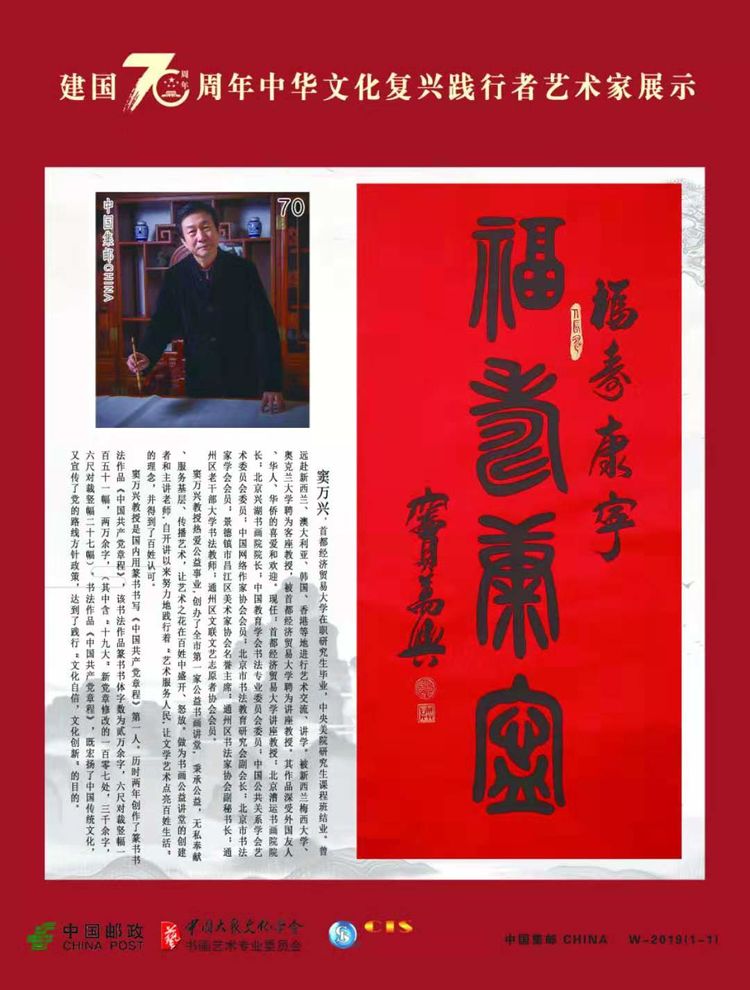 建国70周年中华文化复兴践行者艺术家展示
周年
中国集邮CHINA
70
福寿康宁
福寿康宁
窦万兴
窦万兴，首都经济贸易大学在职研究生毕业，中央美院研究生课程班结业。曾
远赴新西兰、澳大利亚、韩国、香港等地进行艺术交流、讲学，被新西兰梅西大学、
奥克兰大学聘为客座教授，被首都经济贸易大学聘为讲座教授，其作品深受外国友人
、华人、华侨的喜爱和欢迎。现任：首都经济贸易大学讲座教授；北京漕运书画院院
长；北京兴湖书画院院长；中国教育学会书法专业委员会委员；中国公共关系学会艺
术委员会委员；中国网络作家协会会员；北京市书法教育研究会副会长；北京市书法
家学会会员；景德镇市昌江区美术家协会名誉主席；通州区书法家协会副秘书长；通
州区老干部大学书法教师；通州区文联文艺志愿者协会会员。
窦万兴教授热爱公益事业，创办了全市第一家公益书画讲堂，秉承公益，无私奉献
、服务基层、传播艺术，让艺术之花在百姓中盛开、怒放。做为书画公益讲堂的创建
者和主讲老师，自开讲以来努力地践行着“艺术服务人民，让文学艺术点亮百姓生活”
的理念，并得到了百姓认可。
窦万兴教授是国内用篆书书写《中国共产党章程》第一人。历时两年创作了篆书书
法作品《中国共产党章程》，该书法作品篆书书体字数为贰万余字，六尺对裁竖幅一
百五十一幅，两万余字，（其中含“十九大”新党章修改的一百零七处，三千余字，
六尺对裁竖幅二十七幅）、书法作品《中国共产党章程》，既宏扬了中国传统文化，
又宣传了党的路线方针政策，达到了践行“文化自信，文化创新”的目的。
中国邮政
CHINA POST
艺
中国大众文化学会
书画艺术专业委员会
CTS
中国集邮 CHINA W-2019(1-1)